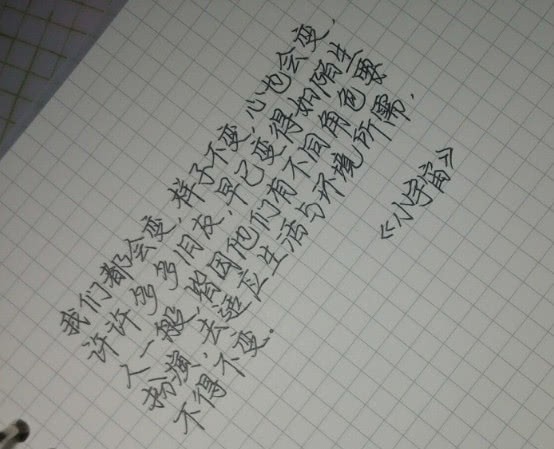 我们都会变，样子不变，心也会变，
许许多多旧友，早已变得如陌生
人一般，皆因他们有不同角色要
扮演，去适应生活与环境所需，
不得不变。
《小宇宙》